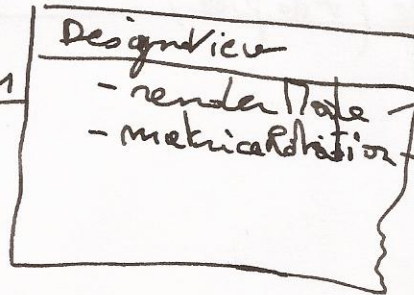 1
DesignView
- renderMode -
- matriceRotation -